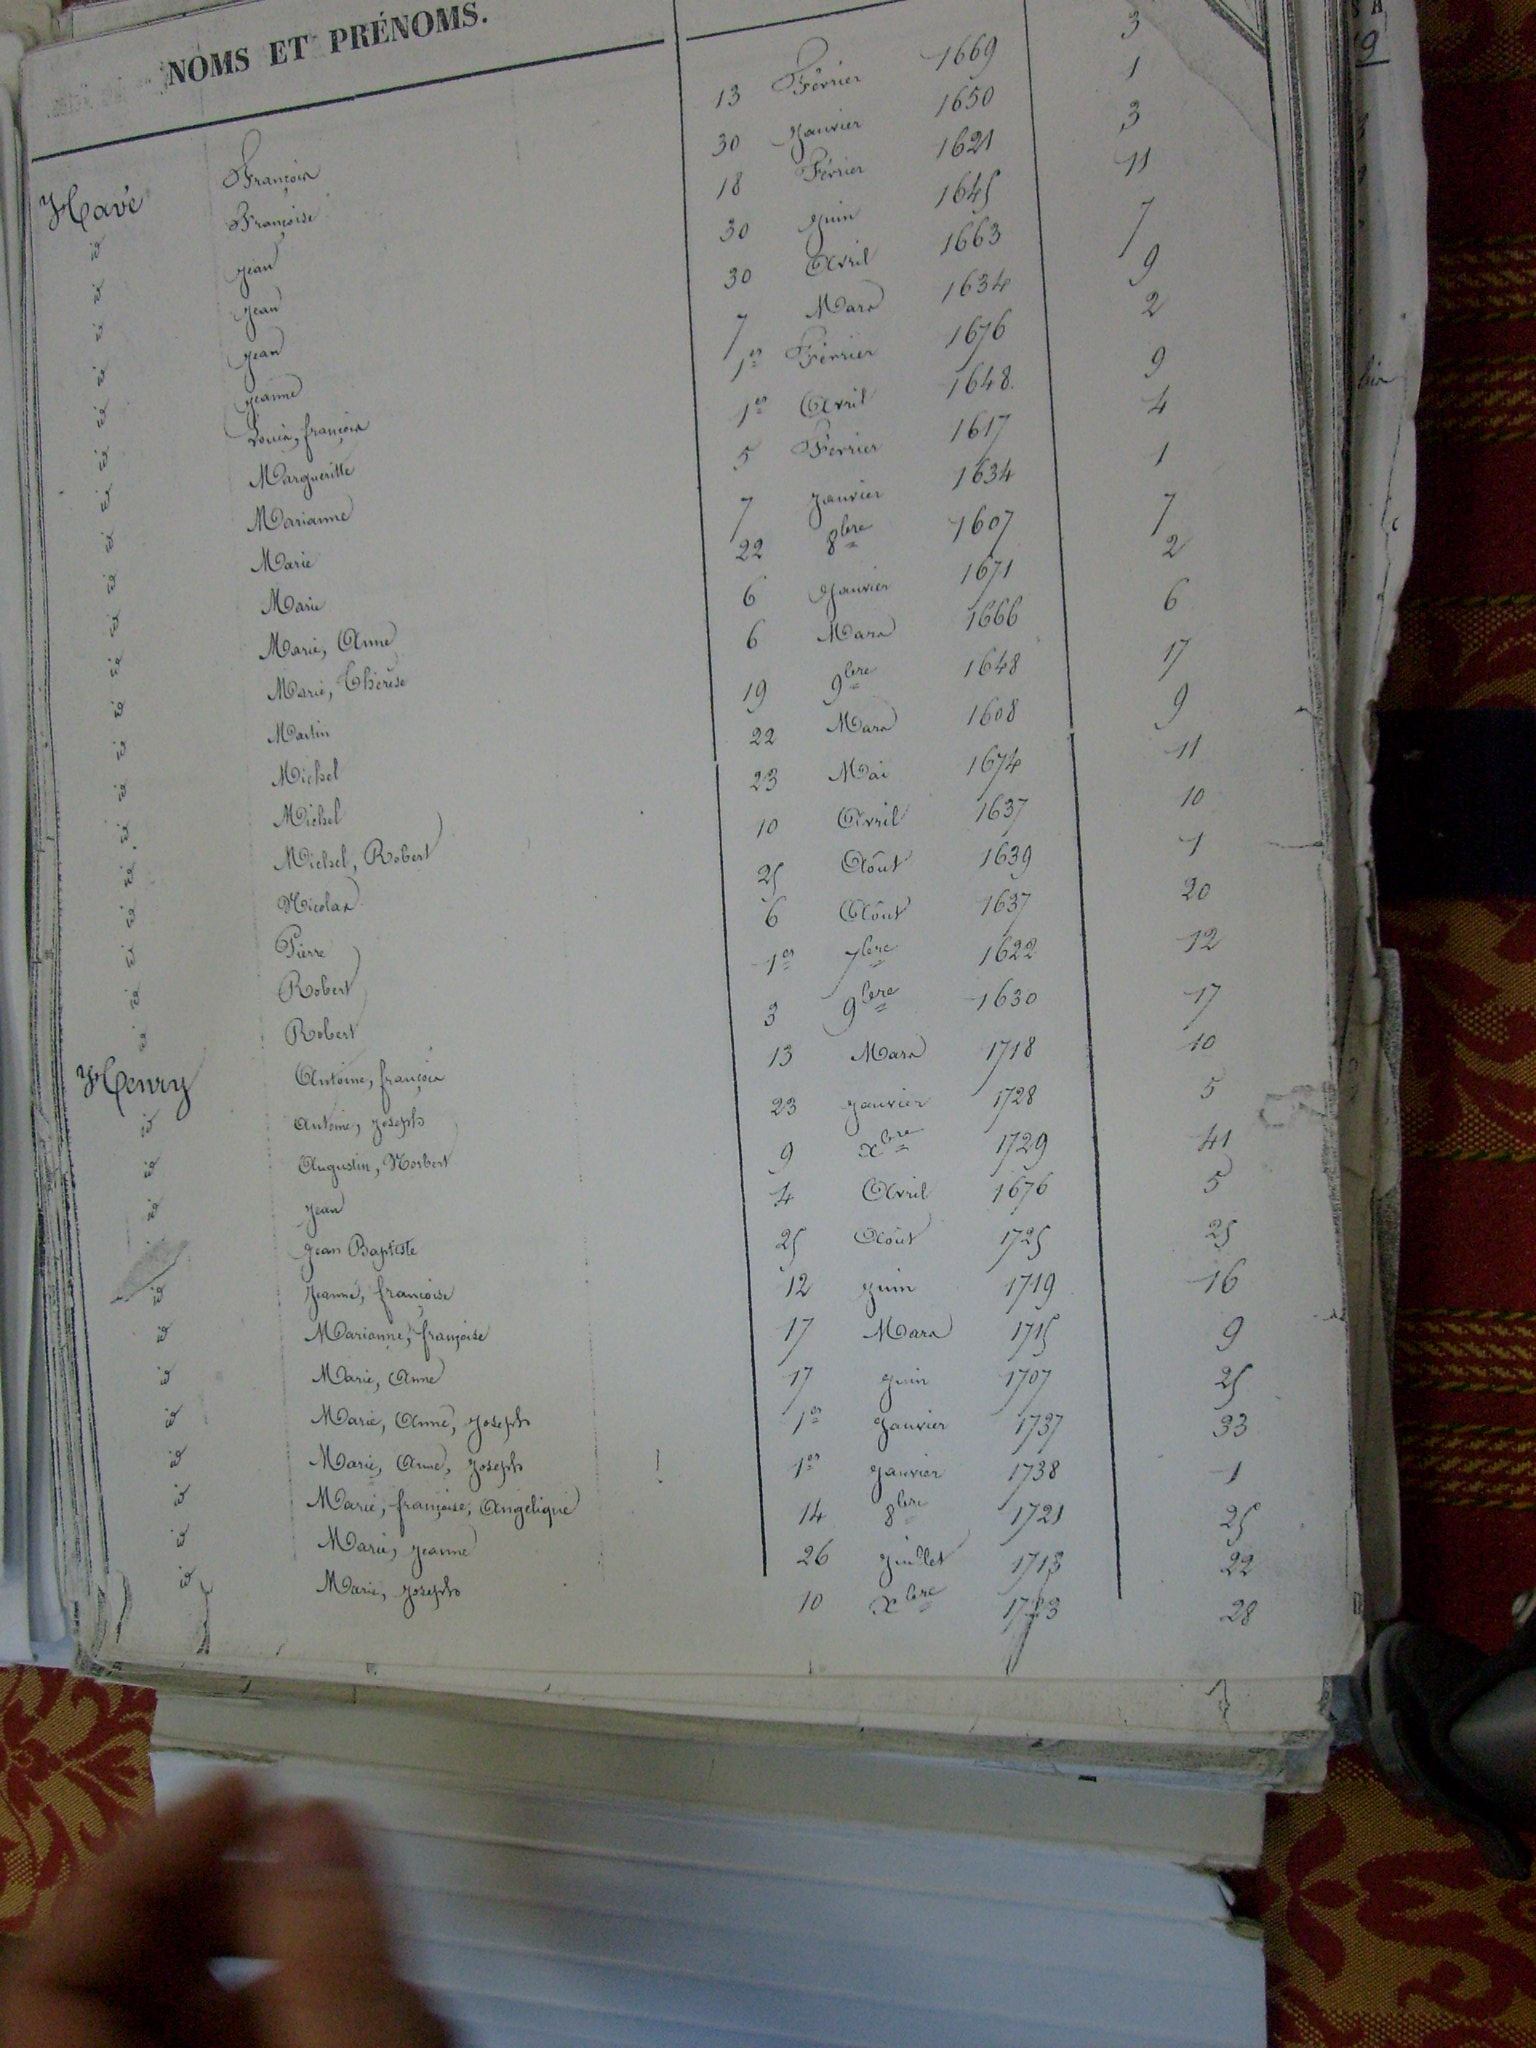 NOMS ET PRÉNOMS.
Havé François 13 Février 1669 3
id Françoise 30 Janvier 1650 1
id Jean 18 Février 1621 3
id Jean 30 Juin 1645 11
id Jean 30 Avril 1663 7
id Jeanne 7 Mars 1634 9
id Louis, françois 1er Février 1676 2
id Margueritte 1er Avril 1648. 9
id Marianne 5 Février 1617 4
id Marie 7 Janvier 1634 1
id Marie 22 8bre 1607 7
id Marie, Anne 6 Janvier 1671 2
id Marie, Thérèse 6 Mars 1666 6
id Martin 19 9bre 1648 17
id Michel 22 Mars 1608 9
id Michel 23 Mai 1674 11
id Michel, Robert 10 Avril 1637 10
id Nicolas 25 Août 1639 1
id Pierre 6 Août 1637 20
id Robert 1er 7bre 1622 12
id Robert 3 9bre 1630 17
Henry Antoine, françois 13 Mars 1718 10
id Antoine, Joseph 23 Janvier 1728 5
id Augustin, Norbert 9 Xbre 1729 41
id Jean 4 Avril 1676 5
id Jean Baptiste 25 Août 1725 25
id Jeanne, françoise 12 Juin 1719 16
id Marianne, françoise 17 Mars 1715 9
id Marie, Anne 17 Juin 1707 25
id Marie, Anne, Joseph 1er Janvier 1737 33
id Marie, Anne, Joseph 1er Janvier 1738 1
id Marie, françoise, Angelique 14 8bre 1721 25
id Marie, Jeanne 26 Juillet 1713 22
id Marie, Joseph 10 Xbre 1723 28